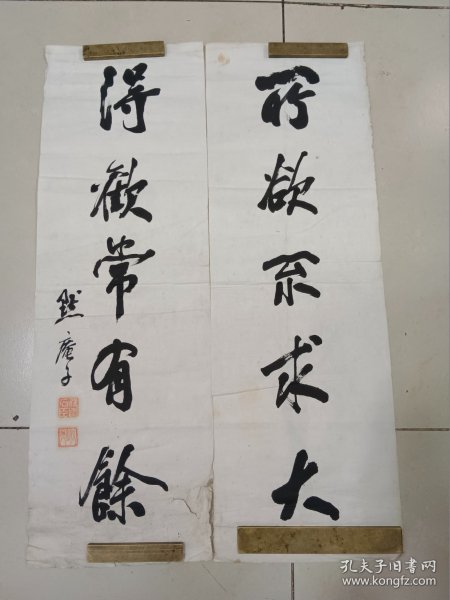 所欲不求大
得歡常有餘
默庵子
孔夫子旧书网
www.kongfz.com